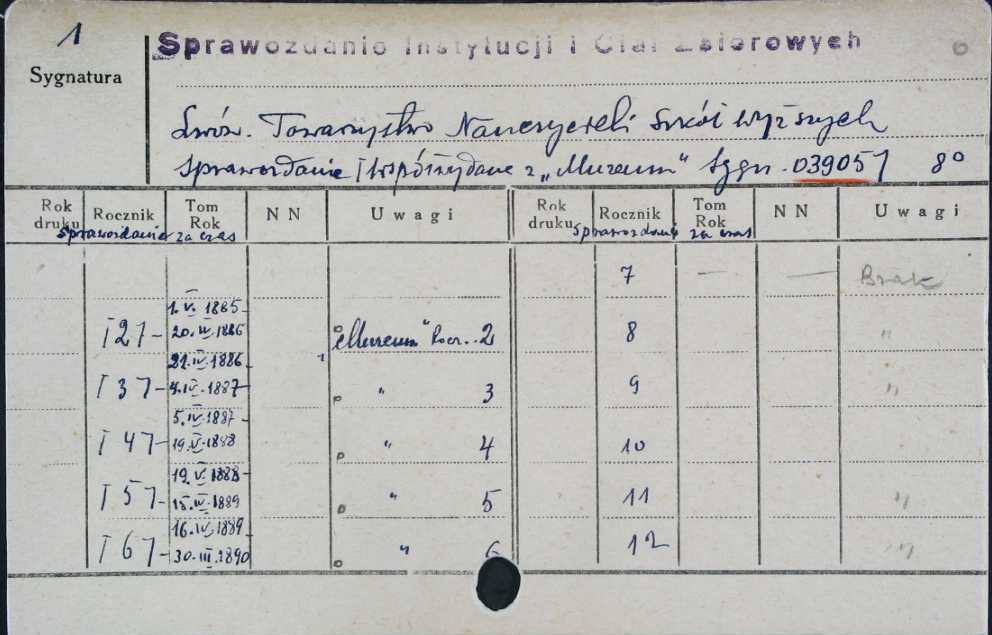 1
Sprawozdanie Instytucji i Ciał Zbiorowych
Sygnatura
Lwów. Towarzystwo Nauczycieli Szkół Wyższych
Sprawozdanie [Współwydane z „Muzeum" Sygn. 039051 8°
Rok druku Rocznik Tom Rok NN Uwagi Rok druku Rocznik Tom Rok NN Uwagi
Sprawozdanie za czas Sprawozdanie za czas
7 — — Brak
[2] 1.V.1885- 20.IV.1886 „Muzeum" Rocz. 2 8 "
[3] 21.IV.1886- 4.IV.1887 " 3 9 "
[4] 5.IV.1887- 19.V.1888 " 4 10
[5] 19.V.1888- 15.IV.1889 " 5 11 "
[6] 16.IV.1889- 30.III.1890 " 6 12 "